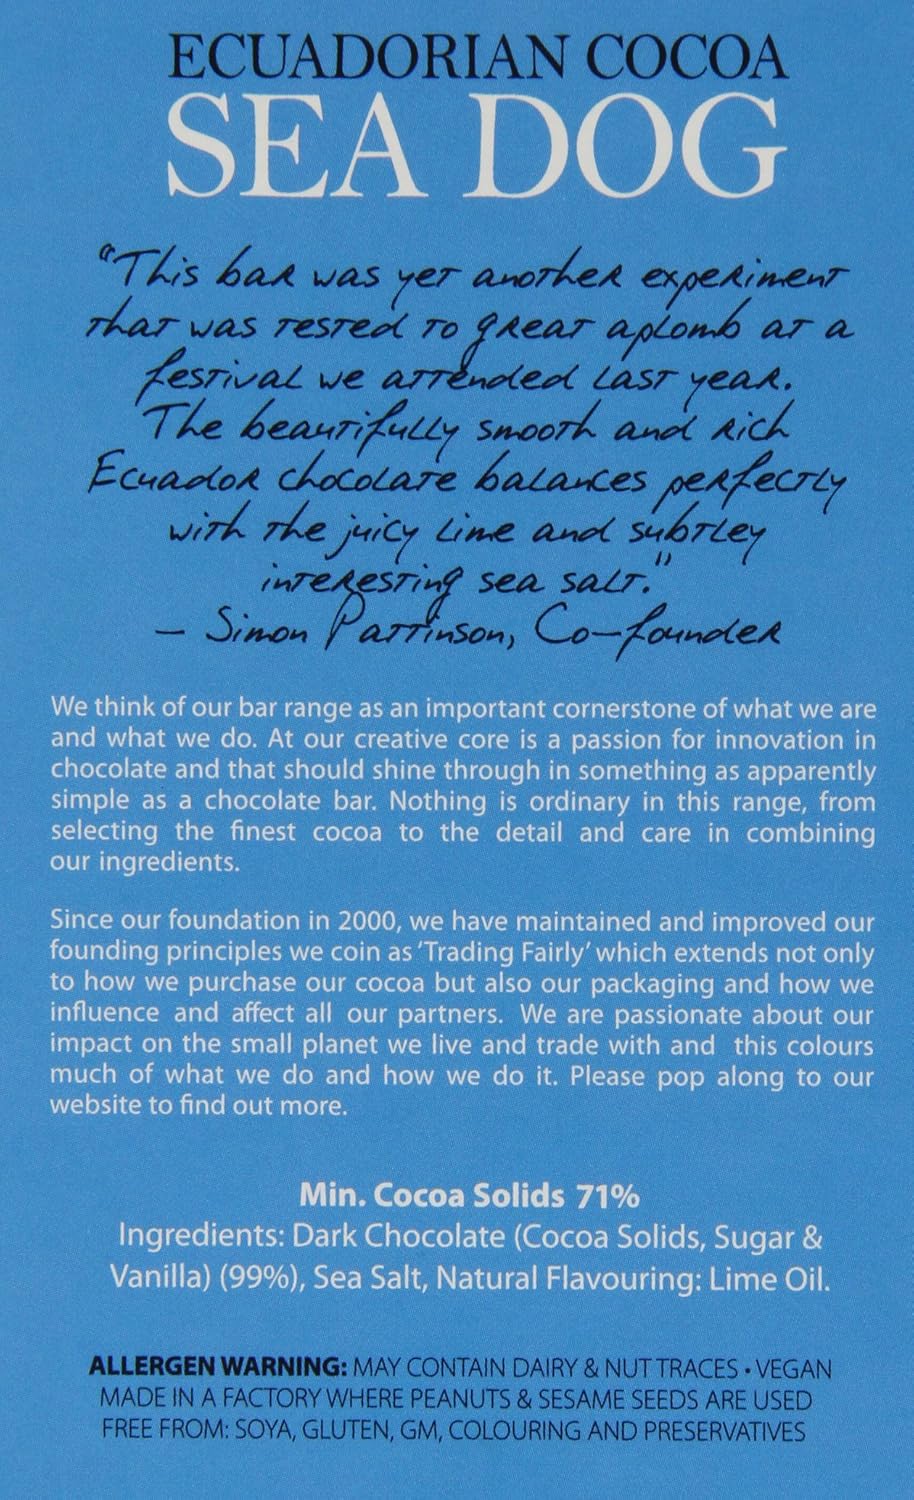 ECUADORIAN COCOA
SEA DOG
“This bar was yet another experiment
that was tested to great aplomb at a
festival we attended last year.
The beautifully smooth and rich
Ecuador chocolate balances perfectly
with the juicy lime and subtley
interesting sea salt.”
– Simon Pattinson, Co-founder
We think of our bar range as an important cornerstone of what we are
and what we do. At our creative core is a passion for innovation in
chocolate and that should shine through in something as apparently
simple as a chocolate bar. Nothing is ordinary in this range, from
selecting the finest cocoa to the detail and care in combining
our ingredients.
Since our foundation in 2000, we have maintained and improved our
founding principles we coin as ‘Trading Fairly’ which extends not only
to how we purchase our cocoa but also our packaging and how we
influence and affect all our partners. We are passionate about our
impact on the small planet we live and trade with and this colours
much of what we do and how we do it. Please pop along to our
website to find out more.
Min. Cocoa Solids 71%
Ingredients: Dark Chocolate (Cocoa Solids, Sugar &
Vanilla) (99%), Sea Salt, Natural Flavouring: Lime Oil.
ALLERGEN WARNING: MAY CONTAIN DAIRY & NUT TRACES • VEGAN
MADE IN A FACTORY WHERE PEANUTS & SESAME SEEDS ARE USED
FREE FROM: SOYA, GLUTEN, GM, COLOURING AND PRESERVATIVES